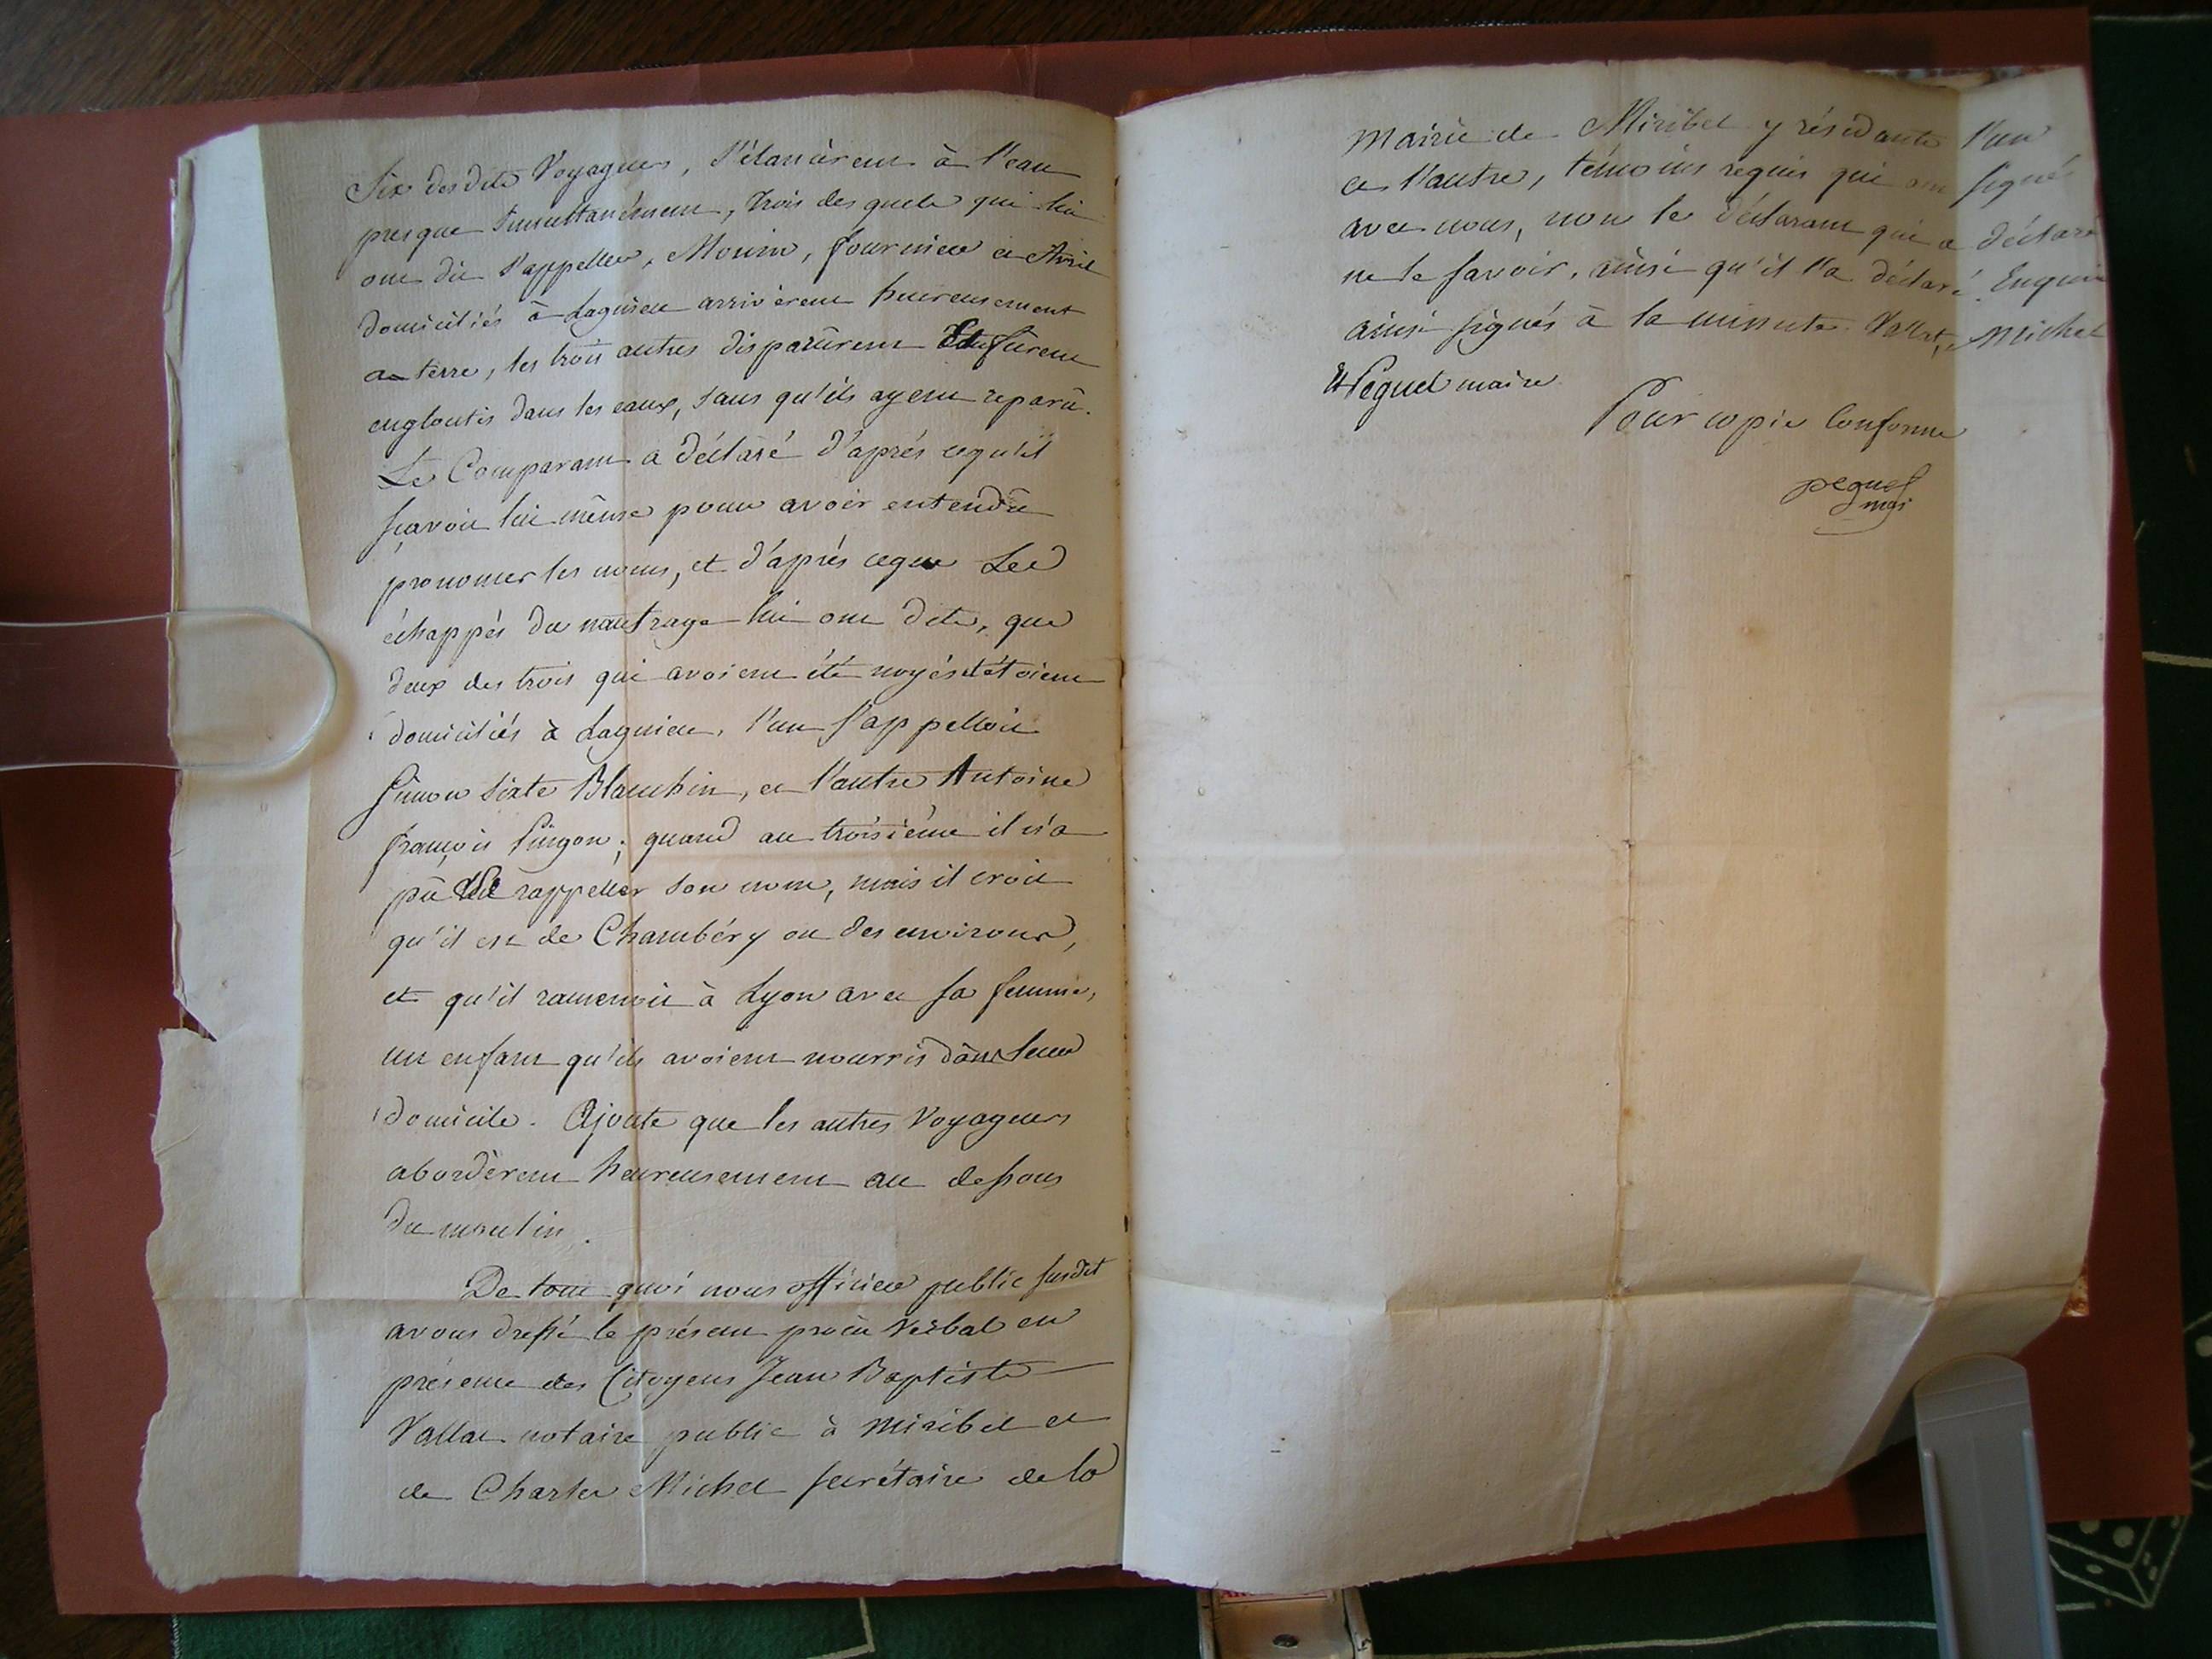 Six desdits Voyageurs, s'élancèrent à l'eau
presque simultanément, trois desquels qui lui
ont dit s'appeller, Monin, fournier et Avril
domiciliés à Lagnieu arrivèrent heureusement
a terre, les trois autres disparûrent Et fûrent
engloutis dans les eaux, sans qu'ils ayent reparû.
Le Comparant a déclaré d'aprés cequ'il
sçavoit lui même pour avoir entendû
prononcer les noms, et d'aprés ceque Les
échappés du naufrage lui ont dits, que
deux des trois qui avoient été noyés étoient
domiciliés à Lagnieu, l'un s'appelloit
Simon Sixte Blanchin, et l'autre Antoine
françois Pingon; quand au troisiéme il n'a
pû se rappeller son nom, mais il croit
qu'il est de Chambéry ou des environs,
et qu'il ramenoit à Lyon avec sa femme,
un enfant qu'ils avoient nourris dans leur
domicile. Ajoute que les autres Voyageurs
abordèrent heureusement au dessous
du moulin.
De tout quoi nous officier public susdit
avons dressé le présent procès Verbal en
présence des Citoyens Jean Baptiste
Vallat notaire public à Miribel et
de Charles Michel secrétaire de la
Mairie de Miribel y résidants l'un
et l'autre, témoins requis qui ont signés
avec nous, non le déclarant qui a déclaré
ne le savoir, ainsi qu'il l'a déclaré. Enquis
ainsi signés à la minute Vallat, Michel
Et Peguet maire
Pour copie Conforme
peguet
mai